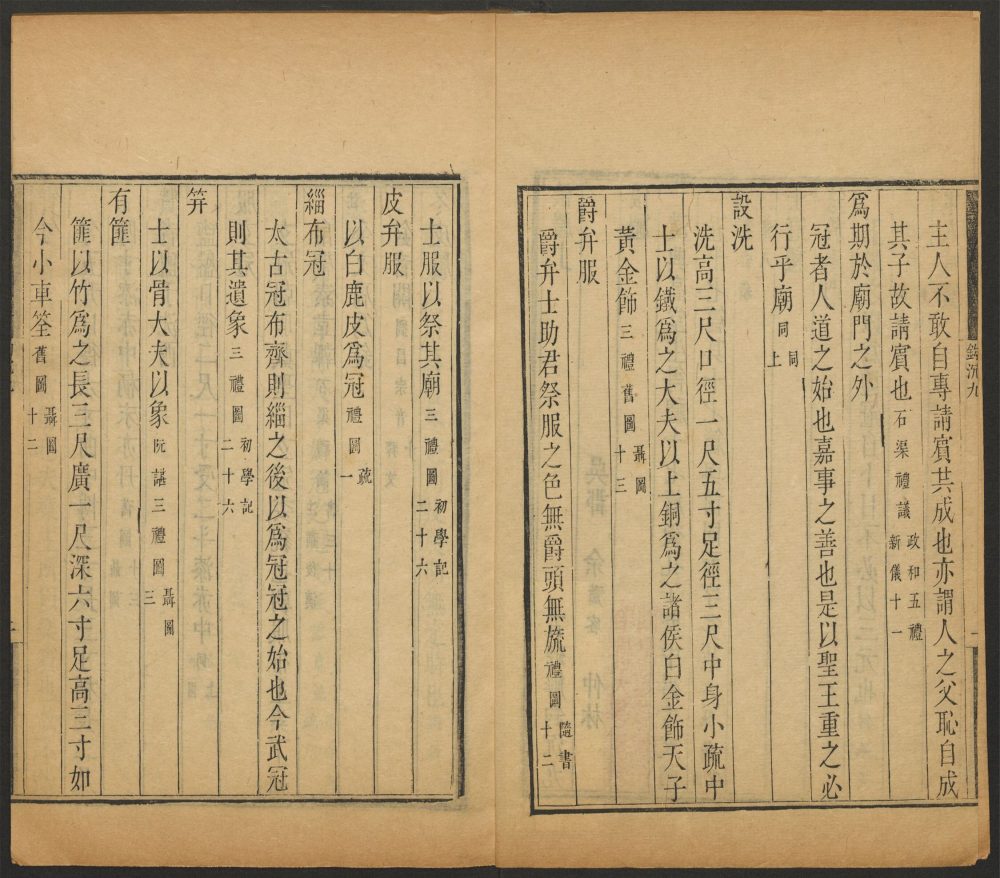 鉤沉九
主人不敢自專請賓共成也亦謂人之父恥自成
其子故請賓也石渠禮議政和五禮新儀十一
爲期於廟門之外
冠者人道之始也嘉事之善也是以聖王重之必
行乎廟同上同
設洗
洗高三尺口徑一尺五寸足徑三尺中身小疏中
士以鐵爲之大夫以上銅爲之諸侯白金飾天子
黃金飾三禮舊圖聶圖十三
爵弁服
爵弁士助君祭服之色無爵頭無旒禮圖隨書十二
士服以祭其廟三禮圖初學記二十六
皮弁服
以白鹿皮爲冠禮圖疏一
緇布冠
太古冠布齊則緇之後以爲冠冠之始也今武冠
則其遺象三禮圖初學記二十六
笄
士以骨大夫以象阮諶三禮圖聶圖三
有篚
篚以竹爲之長三尺廣一尺深六寸足高三寸如
今小車笭舊圖聶圖十二